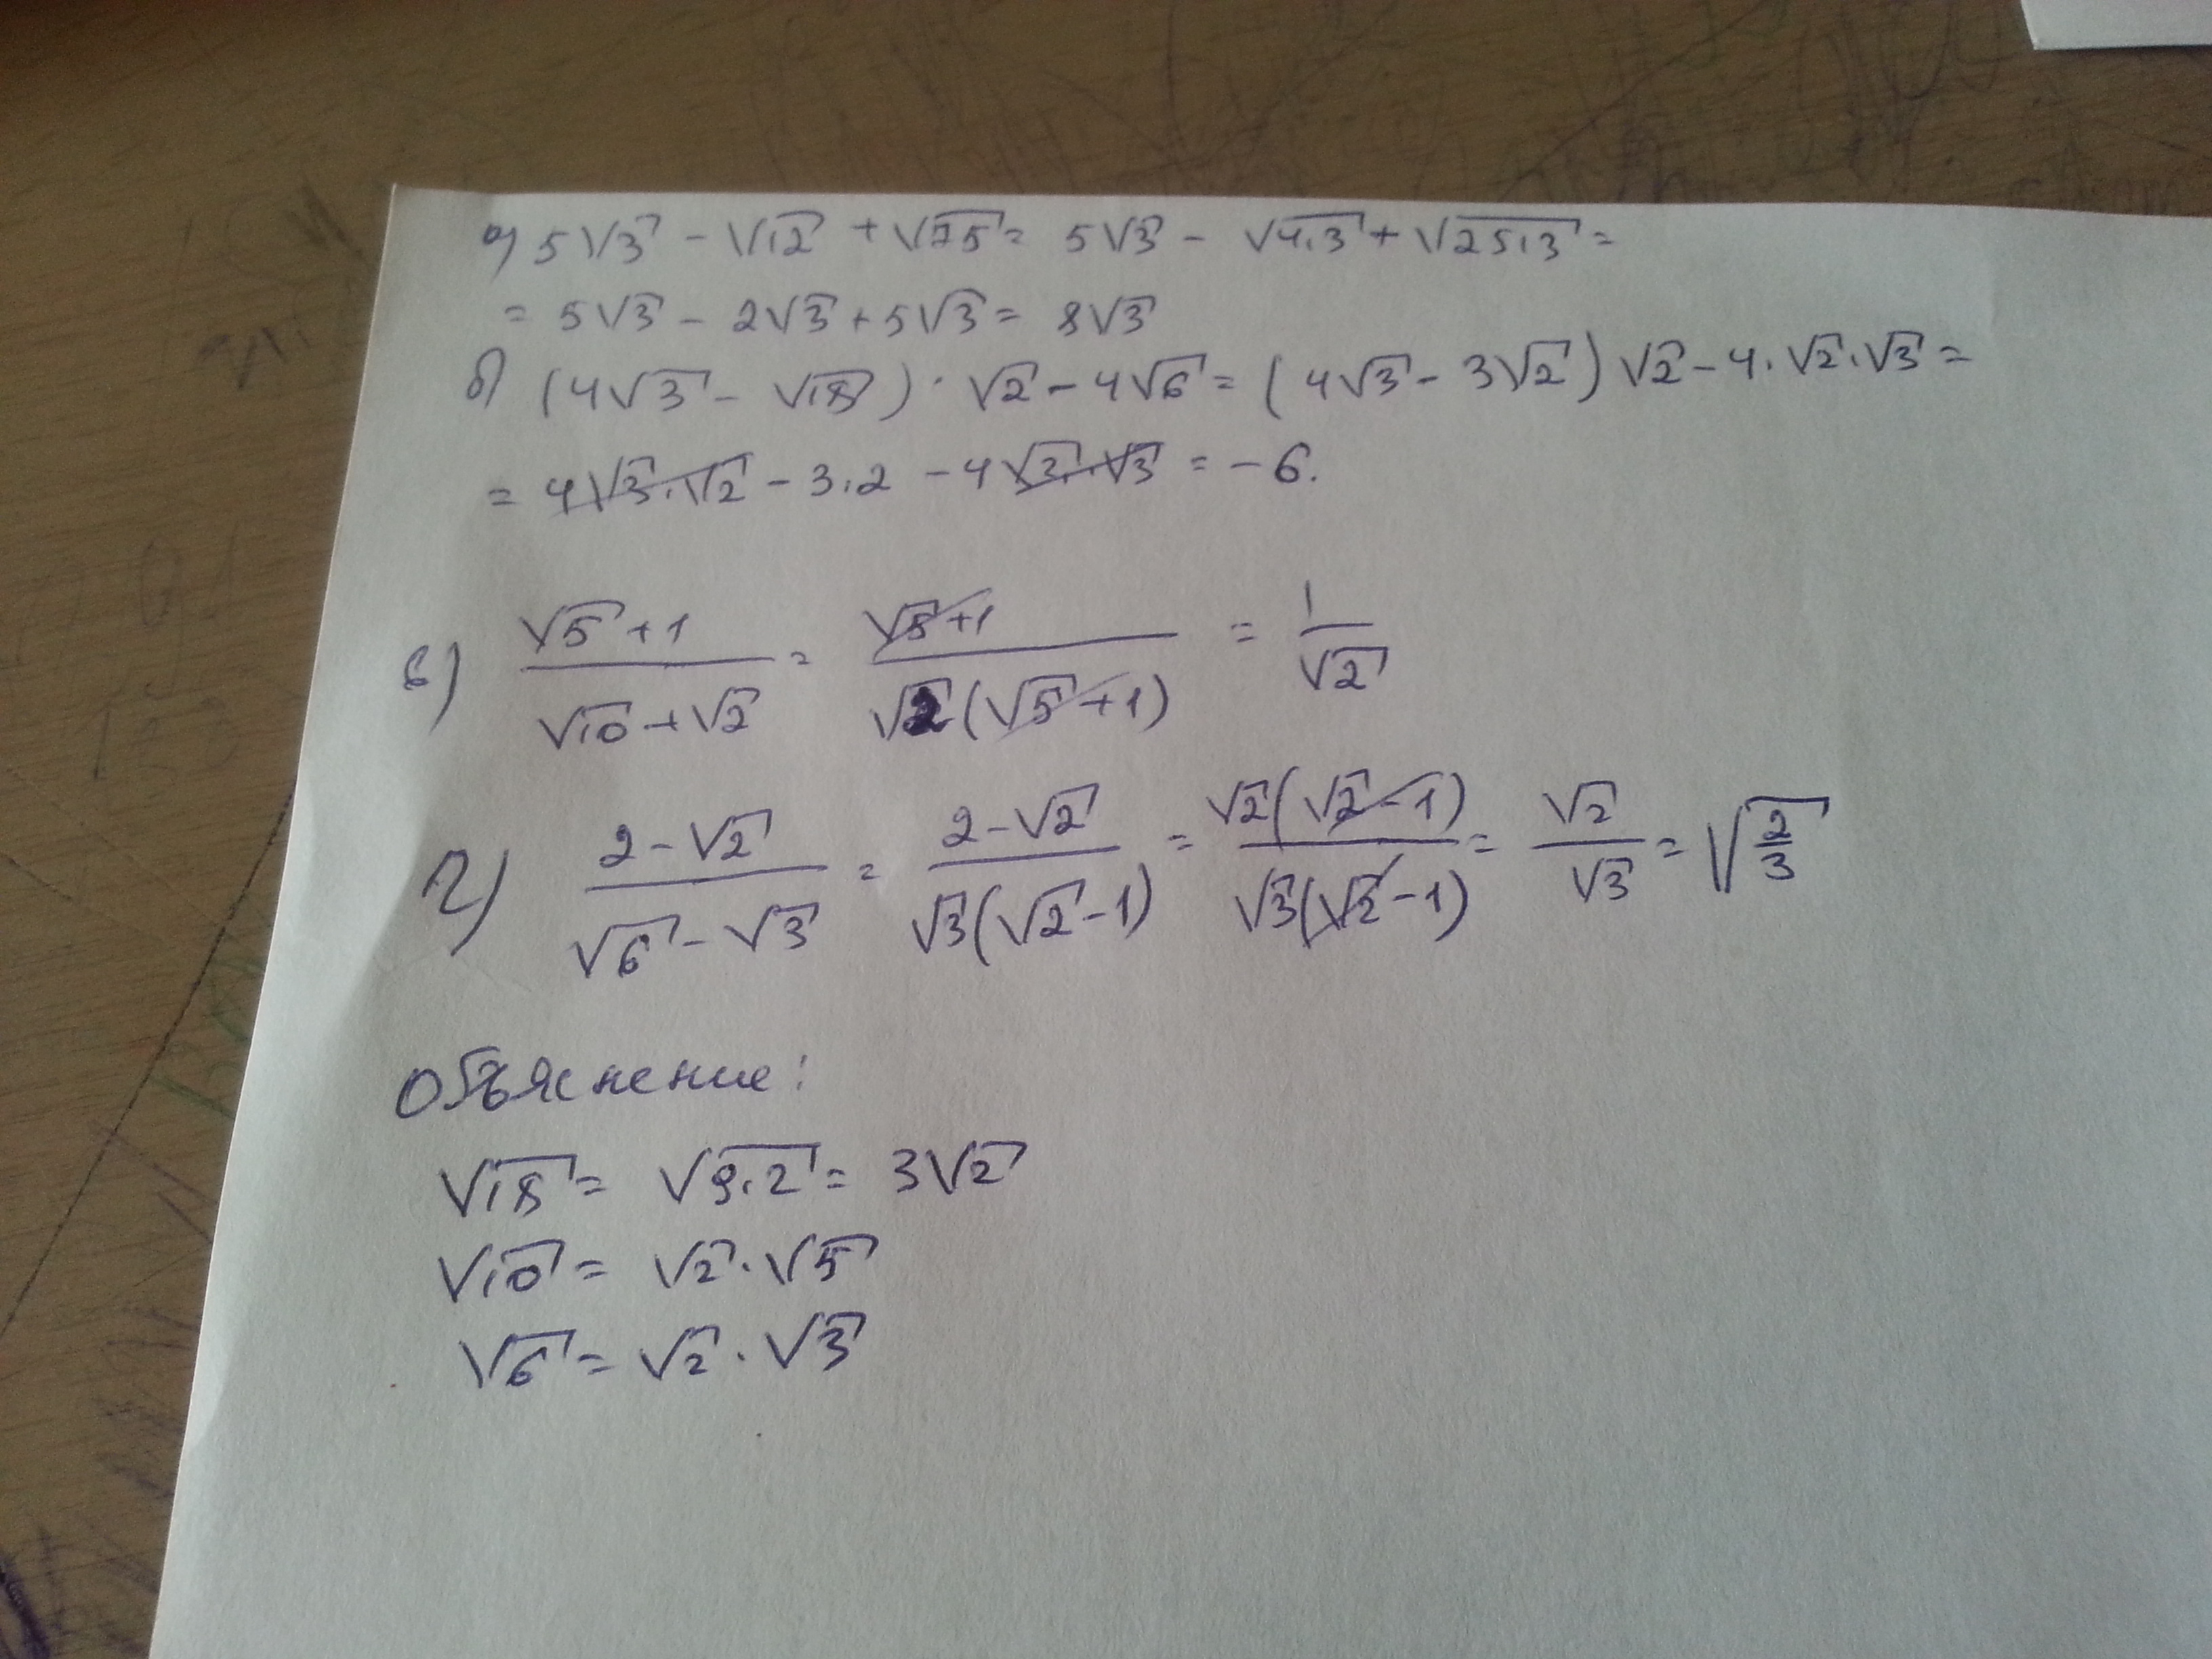 а) 5√3 - √12 + √75 = 5√3 - √4.3 + √25.3 =
= 5√3 - 2√3 + 5√3 = 8√3
б) (4√3 - √18) · √2 - 4√6 = (4√3 - 3√2) √2 - 4 · √2 · √3 =
= 4√3 · √2 - 3.2 - 4√3 · √3 = -6.
в) (√5 + 1)/(√10 + √2) = (√5 + 1)/(√2(√5 + 1)) = 1/√2
г) (2 - √2)/(√6 - √3) = (2 - √2)/(√3(√2 - 1)) = (√2(√2 - 1))/(√3(√2 - 1)) = √2/√3 = √(2/3)
Объяснение:
√18 = √9.2 = 3√2
√10 = √2 · √5
√6 = √2 · √3